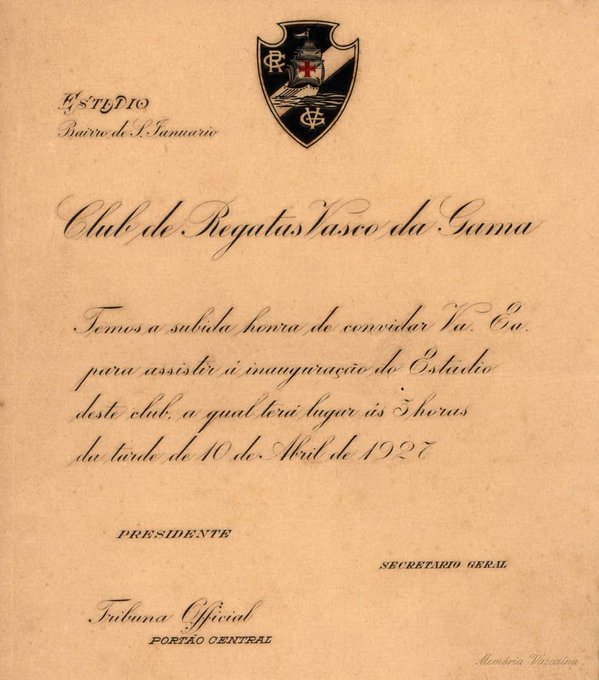 CR
VG
ESTADIO
Bairro de S. Januario
Club de Regatas Vasco da Gama
Temos a subida honra de convidar Va. Ea.
para assistir á inauguração do Estádio
deste club, a qual terá lugar ás 3 horas
da tarde de 10 de Abril de 1927
PRESIDENTE
SECRETARIO GERAL
Tribuna Official
PORTÃO CENTRAL
Memória Vascaína